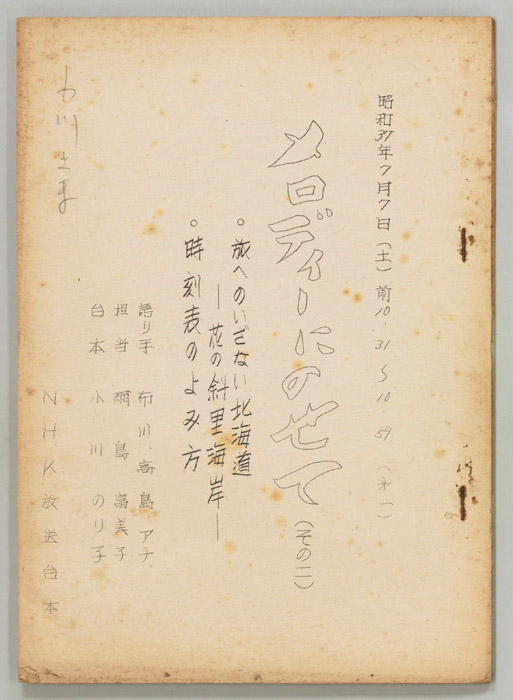 昭和37年7月7日(土)前10.31〜10.59(オ一)
メロディーにのせて(その二)
。旅へのいざない北海道
―花の斜里海岸―
。時刻表のよみ方
語り手 布川、高島アナ.
担当 綱島富美子
台本 小川のり子
NHK放送台本
川さま